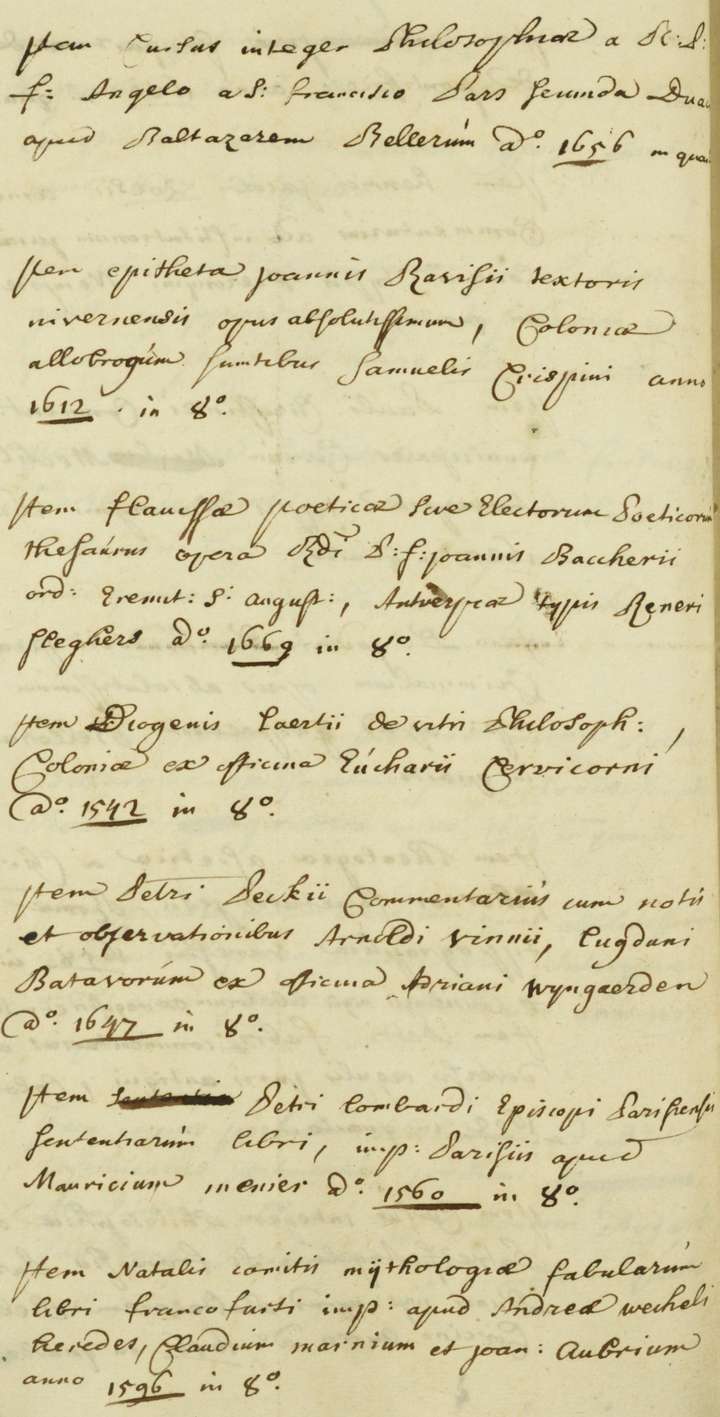 Item Cursus integer Philosophiæ a R: P:
f: Angelo a S: francisco Pars secunda Duaci
apud Baltazarem Bellerúm a&#x1D52;: 1656 in quar
Item epitheta joannis Ravisii textoris
nivernensis opus absolutissimum, Coloniæ
allobrogúm sumtibus Samuelis Crispini anno
1612 . in 8º.
Item flavissæ poeticæ sive Electorum Poeticorúm
thesaúrus opera Rdi P: f: joannis Baccherii
ord: Eremit: S: august:, Antverpiæ typis Reneri
sleghers aº: 1669 in 8º.
Item Diogenis laertii de vitis Philosoph:,
Coloniæ ex officina Eúcharii Cervicorni
aº: 1542 in 8º.
Item Petri Peckii Commentariús cum notis
et observationibus Arnoldi vinnii, lugduni
Batavorúm ex officina Adriani wyngaerden
aº: 1647 in 8º.
Item Petri lombardi Episcopi Parisiensis
sententiarúm libri, imp: Parisiis apud
Mauricium menier aº: 1560 in 8º.
Item Natalis comitis mythologiæ fabularúm
libri francofurti imp: apud Andreæ wecheli
heredes, Claudium marnium et joan: Aubrium
anno 1596 in 8º.